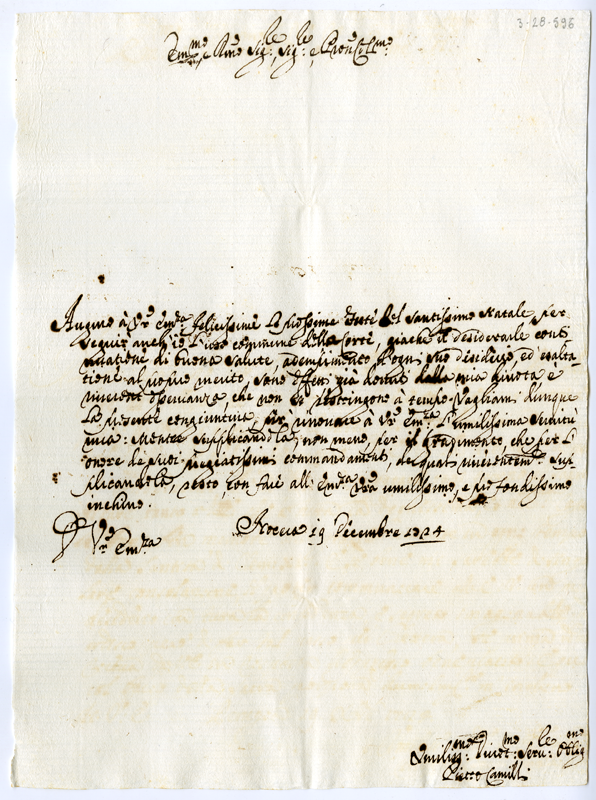 3-28-596
Em.mo e Rmo Sig:le, Sig:le e Pron Col.mo
Auguro à Vrã Em.za felicissime le prossime feste del Santissimo Natale, per
seguir anch'io l'uso commune della Corte, giache il desiderarle conti
nuatione di buona salute, adempimento d'ogni suo desiderio, ed esalta-
tione al proprio merito, sono offerte già dovute dalla mia divota, e
riverente osservanza, che non si restringono a tempo. Vagliami dunque
la presente congiuntura, per rinovare à Vrã Em.za l'umilissima servitù
mia: Mentre supplicandola, non meno, per il gradimento, che per l'
onore de suoi pregiatissimi commandamenti, de quali riverentem.te sup-
plicandola, resto, con fare all' Em.za Vrã umilissimo, e profondissimo
inchino.
Di Vrã Em.za
Roccia 19 Decembre 1724
Umiliss:mo Divot:mo Seru:le Oblig.mo
Pietro Camilli